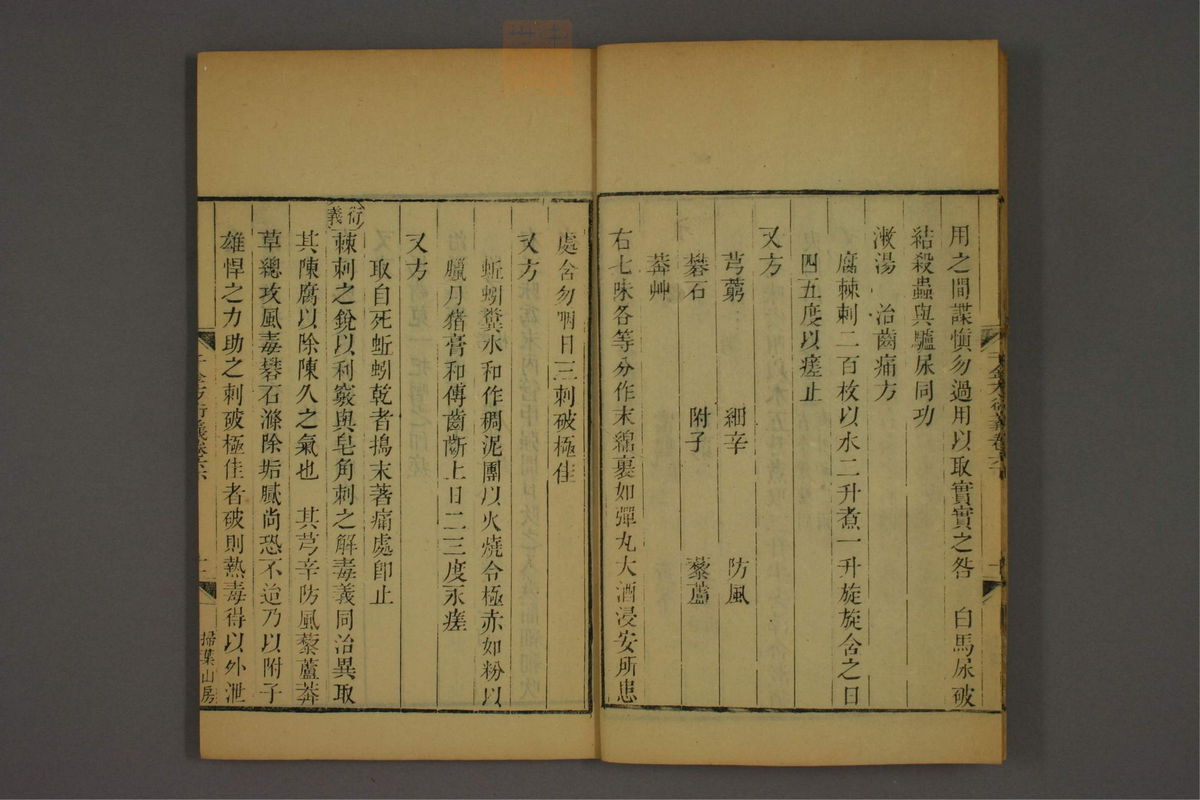 用之間諜愼勿過用以取實實之咎　白馬尿破
結殺蟲與驢尿同功
漱湯　治齒痛方
腐棘刺二百枚以水二升煮一升旋旋含之日
四五度以瘥止
又方
芎藭　細辛　防風
礬石　附子　藜蘆
莽艸
右七味各等分作末綿裹如彈丸大酒浸安所患
處含勿嚥日三刺破極佳
又方
蚯蚓糞水和作稠泥團以火燒令極赤如粉以
臘月猪膏和傅齒齗上日二三度永瘥
又方
取自死蚯蚓乾者搗末著痛處卽止
衍義
棘刺之銳以利竅與皂角刺之解毒義同治異取
其陳腐以除陳久之氣也　其芎辛防風藜蘆莽
草總攻風毒礬石滌除垢膩尚恐不逮乃以附子
雄悍之力助之刺破極佳者破則熱毒得以外泄
千金方衍義卷六
掃葉山房